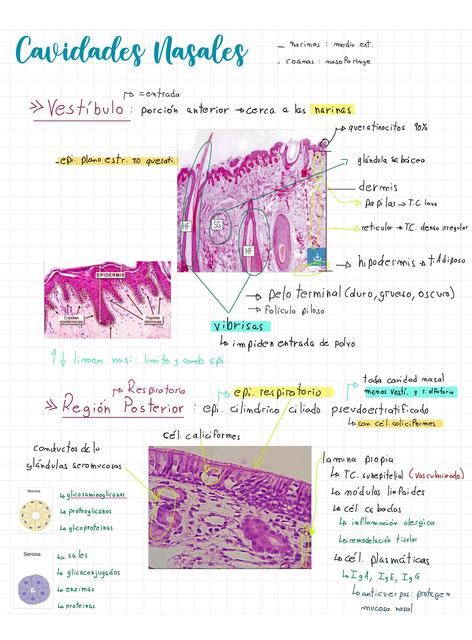 Cavidades Nasales
- narinas: medio ext.
- coanas: nasofaringe
↳ = entrada
>> Vestíbulo: porción anterior → cerca a las narinas
- epi. plano estr. no querati.
queratinocitos 90%
glándula sebácea
dermis
papilas → T.C. laxo
reticular → T.C. denso irregular
hipodermis → t. Adiposo
HF
SG
HF
EPIDERMIS
Crestas epidérmicas
Papilas dérmicas
→ pelo terminal (duro, grueso, oscuro)
→ folículo piloso
vibrisas
↳ impiden entrada de polvo
↑↓ limen nasi: limite y camb. Epi
↳ Respiratoria
→ epi. respiratorio
toda cavidad nasal
menos vesti. y r. olfatoria
>> Región Posterior: epi. cilíndrico ciliado pseudoestratificado
↳ con cél. caliciformes
cél. caliciformes
conductos de la
glándulas seromucosas
Mucosa
↳ glicosaminoglicanos
↳ proteoglicanos
↳ glicoproteinas
Serosa
↳ sales
↳ glicoconjugados
↳ enzimas
↳ proteinas
lamina propia
↳ TC. subepitelial (vascularizado)
↳ nódulos linfoides
↳ cél. cebadas
↳ inflamación alergica
↳ remodelación tisular
↳ cél. plasmáticas
↳ IgA, IgE, IgG
↳ anticuerpos: protege
mucosa nasal